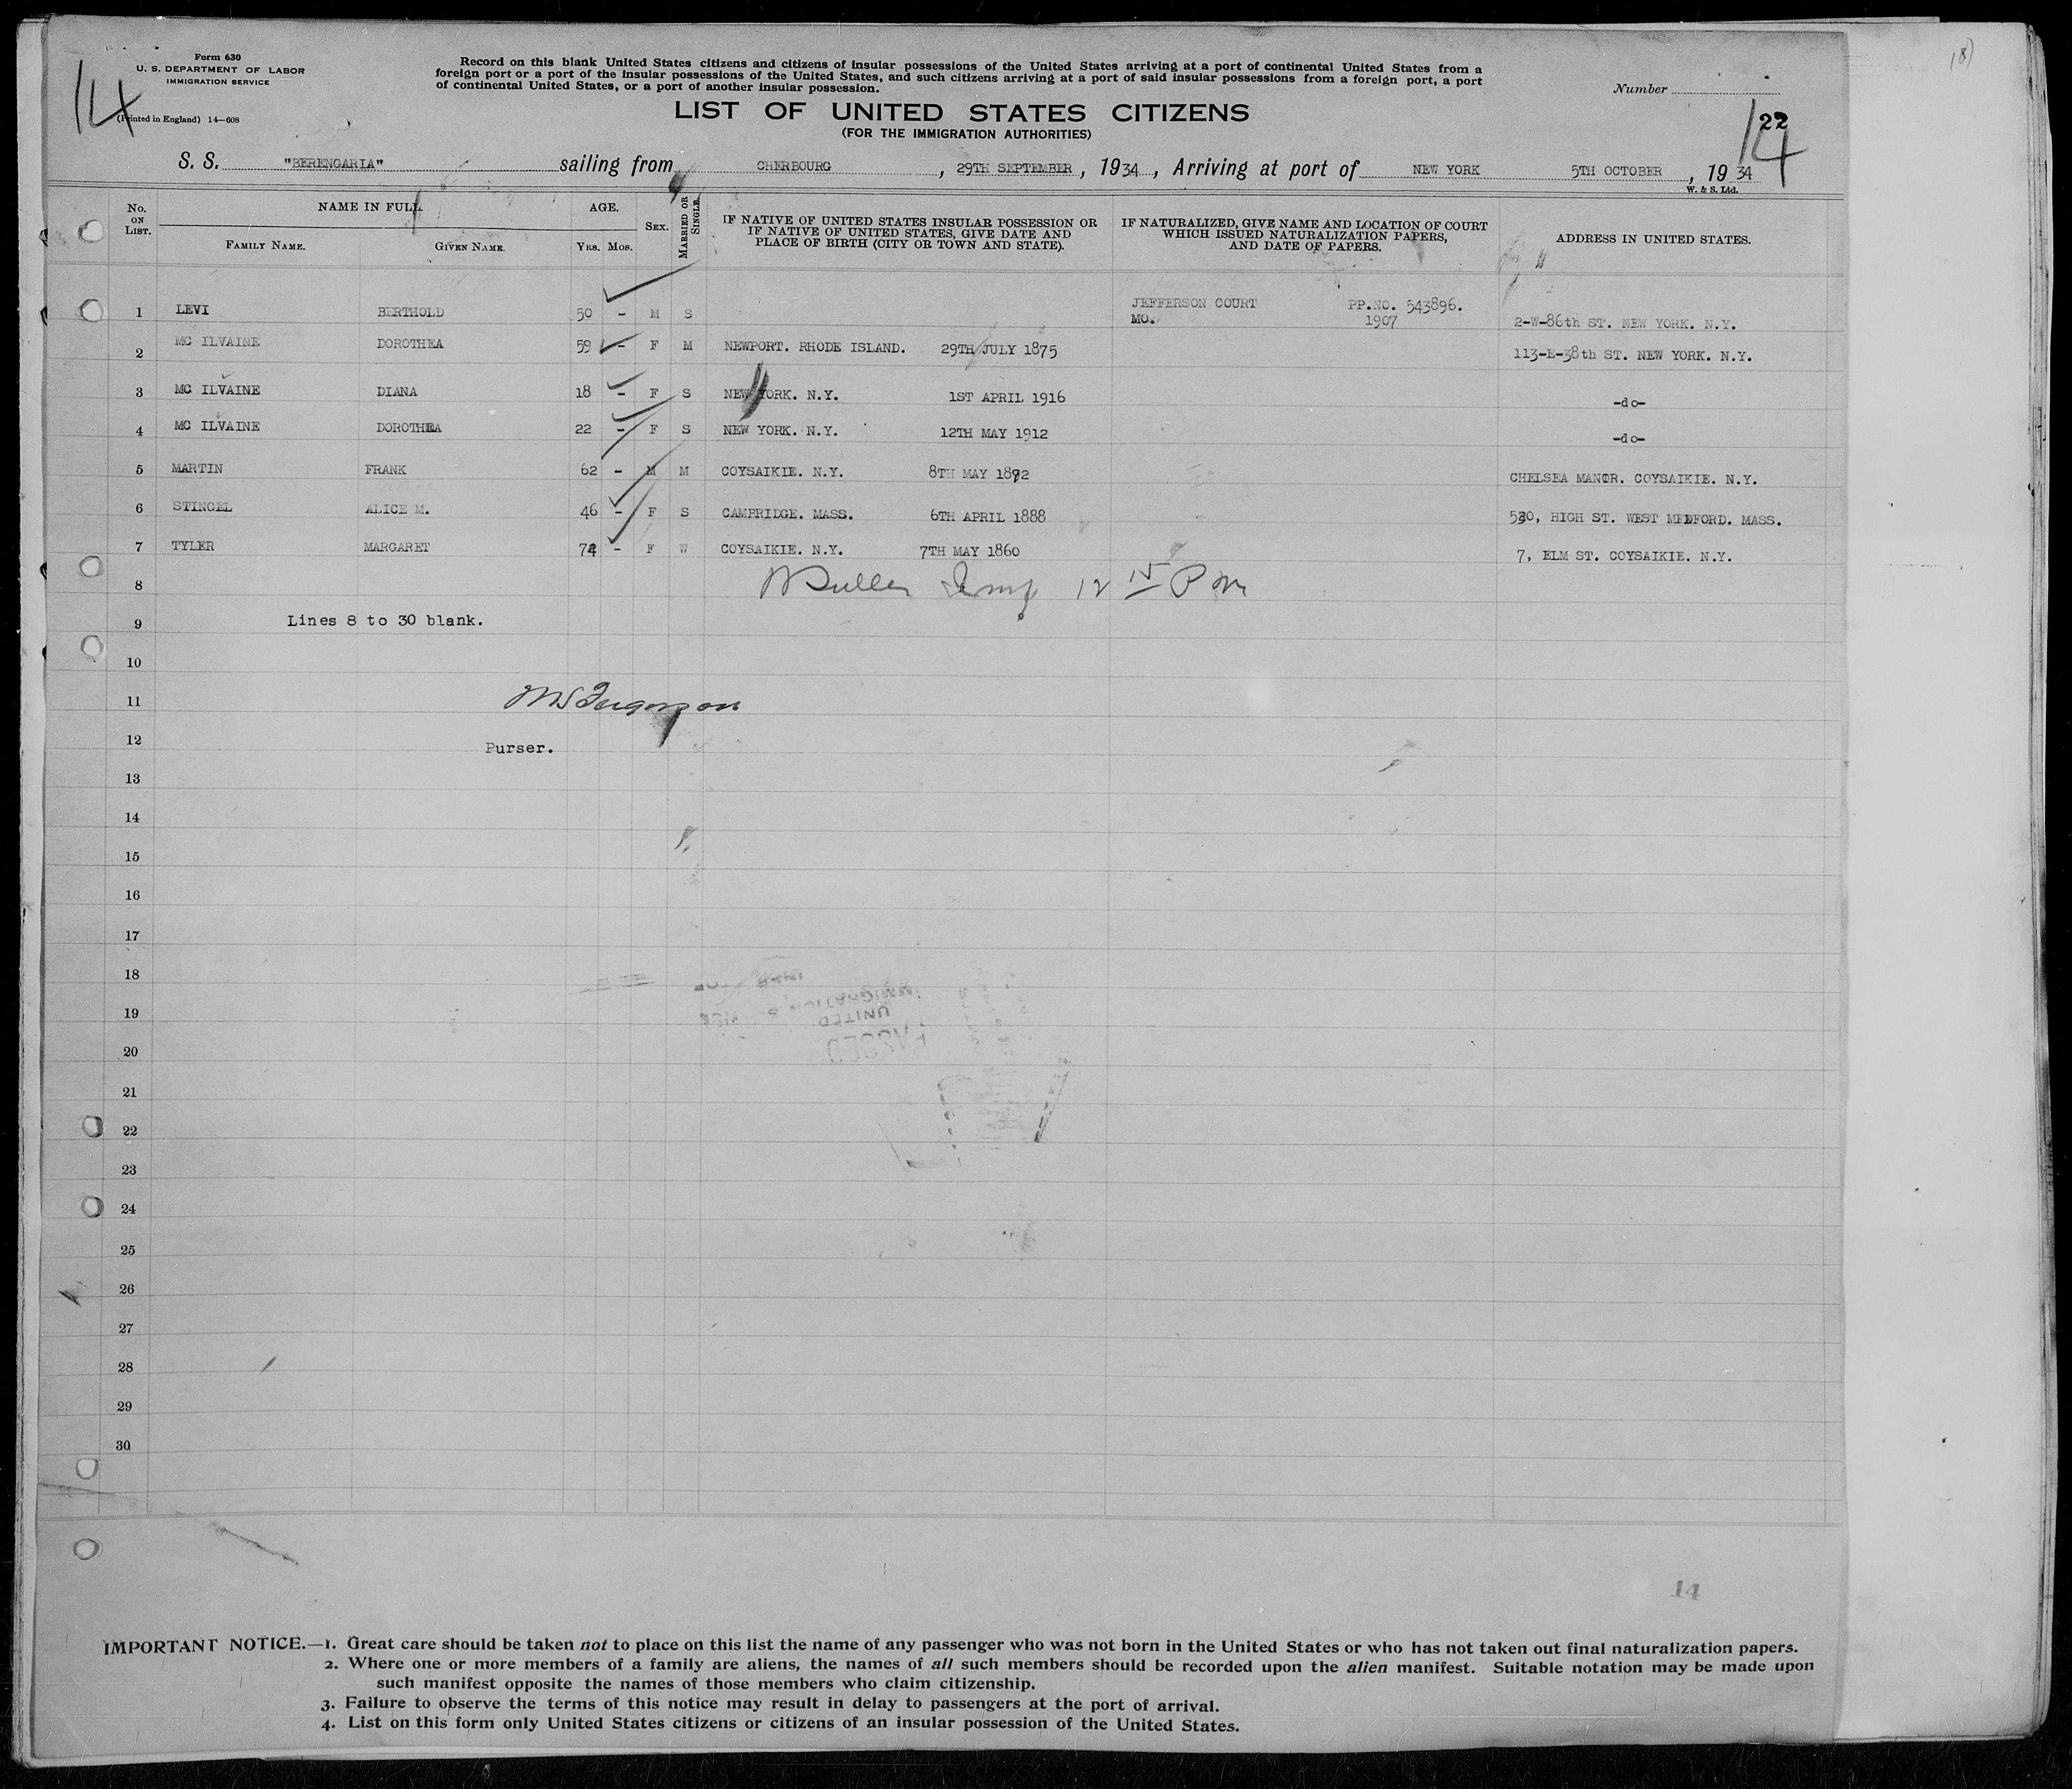 Form 630
U. S. DEPARTMENT OF LABOR
IMMIGRATION SERVICE
14
(Printed in England) 14—608
Record on this blank United States citizens and citizens of insular possessions of the United States arriving at a port of continental United States from a
foreign port or a port of the insular possessions of the United States, and such citizens arriving at a port of said insular possessions from a foreign port, a port
of continental United States, or a port of another insular possession.
LIST OF UNITED STATES CITIZENS
(FOR THE IMMIGRATION AUTHORITIES)
Number
22
14
S. S. "BERENGARIA" sailing from CHERBOURG, 29TH SEPTEMBER, 1934, Arriving at port of NEW YORK 5TH OCTOBER, 19 34
W. & S. Ltd.
No. ON LIST. NAME IN FULL FAMILY NAME. GIVEN NAME. AGE. YRS. MOS. SEX. MARRIED OR SINGLE. IF NATIVE OF UNITED STATES INSULAR POSSESSION OR IF NATIVE OF UNITED STATES, GIVE DATE AND PLACE OF BIRTH (CITY OR TOWN AND STATE). IF NATURALIZED, GIVE NAME AND LOCATION OF COURT WHICH ISSUED NATURALIZATION PAPERS, AND DATE OF PAPERS. ADDRESS IN UNITED STATES.
1 LEVI BERTHOLD 50 - M S JEFFERSON COURT MO. PP.NO. 543896. 1907 2-W-86th ST. NEW YORK. N.Y.
2 MC ILVAINE DOROTHEA 59 - F M NEWPORT. RHODE ISLAND. 29TH JULY 1875 113-E-38th ST. NEW YORK. N.Y.
3 MC ILVAINE DIANA 18 - F S NEW YORK. N.Y. 1ST APRIL 1916 -do-
4 MC ILVAINE DOROTHEA 22 - F S NEW YORK. N.Y. 12TH MAY 1912 -do-
5 MARTIN FRANK 62 - M M COYSAIKIE. N.Y. 8TH MAY 1872 CHELSEA MANOR. COYSAIKIE. N.Y.
6 STINGEL ALICE M. 46 - F S CAMBRIDGE. MASS. 6TH APRIL 1888 530, HIGH ST. WEST MEDFORD. MASS.
7 TYLER MARGARET 74 - F W COYSAIKIE. N.Y. 7TH MAY 1860 7, ELM ST. COYSAIKIE. N.Y.
8 12 15 P m
9 Lines 8 to 30 blank.
10
11
12 Purser.
13
14
15
16
17
18
19
20
21
22
23
24
25
26
27
28
29
30
14
IMPORTANT NOTICE.—1. Great care should be taken not to place on this list the name of any passenger who was not born in the United States or who has not taken out final naturalization papers.
2. Where one or more members of a family are aliens, the names of all such members should be recorded upon the alien manifest. Suitable notation may be made upon
such manifest opposite the names of those members who claim citizenship.
3. Failure to observe the terms of this notice may result in delay to passengers at the port of arrival.
4. List on this form only United States citizens or citizens of an insular possession of the United States.